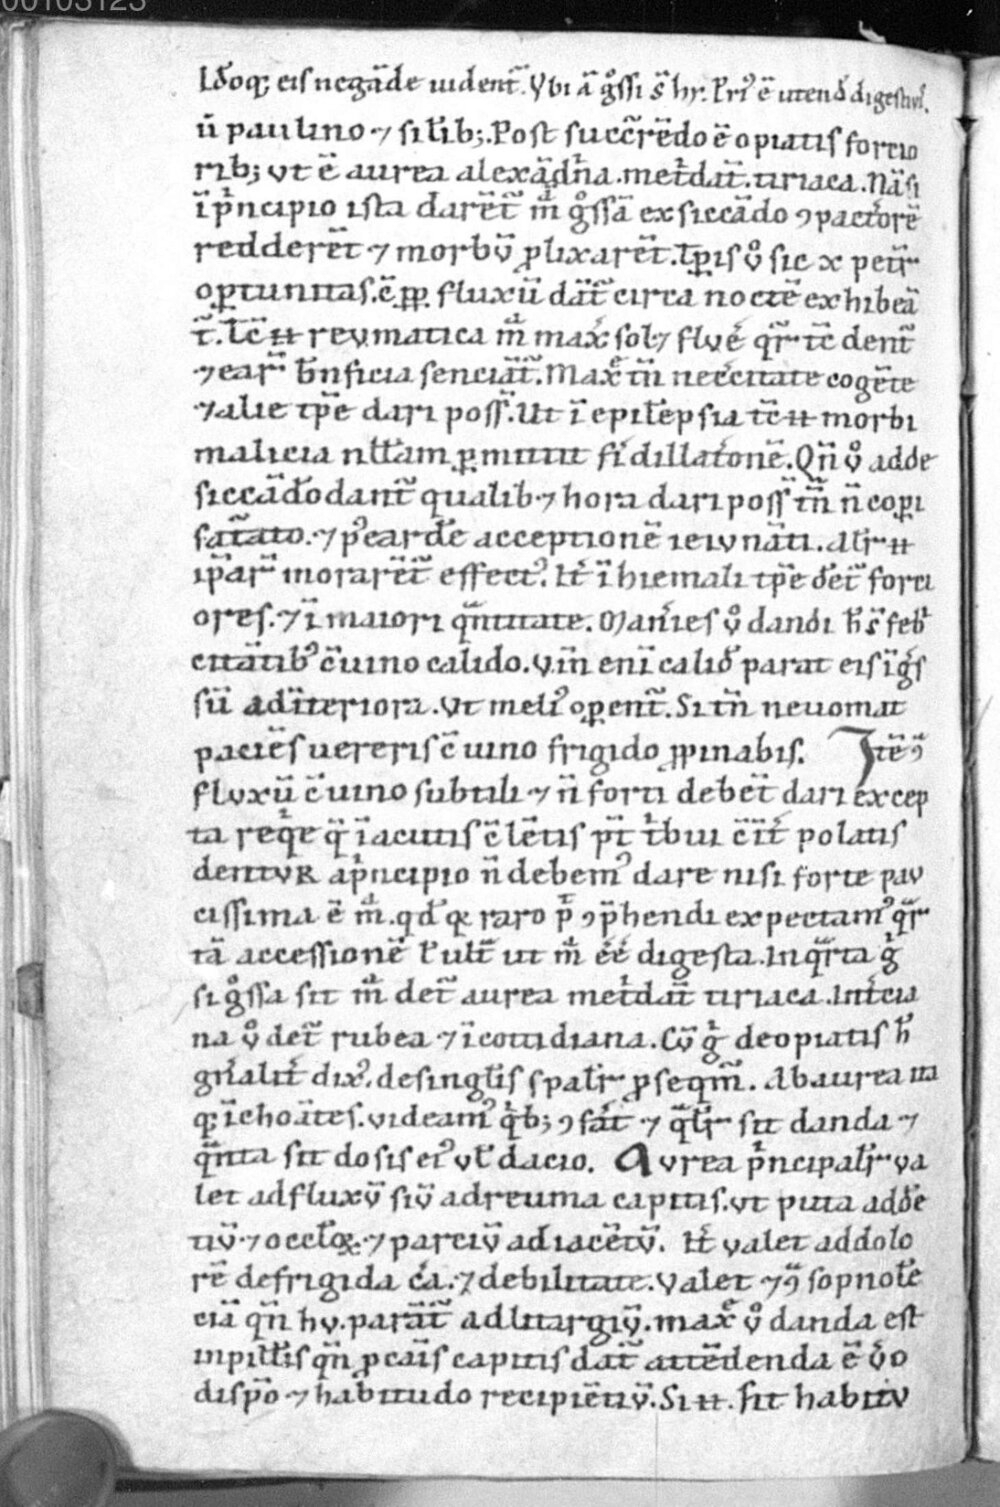 00103123
Idoq; eis negãde uident᷒. Vbi ã gͦssi s̃ hy. Pri᷒ ẽ utend digestiuis.
ũ paulino ⁊ silib;. Post succr̃edo ẽ opiatis fortio
rib; vt ẽ aurea alexãdⁱna. metⁱdat̃. tiriaca. Nã si
ĩ pⁱncipio ista darẽt᷒ mᵃ gͦssã exsiccãdo ꝯpactͦorẽ
redderẽt ⁊ morbũ ꝓlixarẽt. Tp̃is vͦ sic
oꝑtunitas. ẽ ꝓꝑ fluxũ dãt᷒ circa noctẽ exhibeã
t᷒. reumatica mᵃ max̃ sol; fluẽ dent᷒
⁊ear᷒ bñficia senciãt᷒. Max̃ tñ necẽitate cogẽte
⁊alie tp̃e dari poss᷒. Ut ĩ epilepsia morbi
malicia nllam ꝑmittit fi dillatͦonẽ. Qñ vͦ adde
siccãdo dant᷒ qualib ⁊ hora dari poss᷒ tñ ñ copi
⁊ acceptionẽ ieiunãti. Alr̃
ip̃ar᷒ morarẽt᷒ effect᷒. It̃ ĩ hiemali tp̃e det᷒ forti
ores. ⁊ ĩ maiori qⁿtitate. Manies vͦ dandi h̃ s̃ feb
citãtib᷒ c̃ uino calido. Vim̃ enĩ calid parat eis ĩgͥs
sũ ad ĩteriora. Vt meli᷒ oꝑent᷒. Si tñ ne uomat
paciẽs uereris c̃ uino frigido ꝓpinabis. Itẽ ꝯ
fluxũ c̃ uino subtili ⁊ ñ forti debet᷒ dari excep
ta reqⁱe q̃ ĩ acutis c̃ lẽtis pt̃ tⁱbui polatis
dentVR apⁱncipio ñ debem᷒ dare nisi forte pau
cissima ẽ mᵃ. qd raro p̃ ꝯp̃hendi expectam᷒ qᵃr
tã accessionẽ ł ult᷒ ut mᵃ ẽẽ digesta. In qᵃrta gͥ
si gͦssa sit mᵃ det᷒ aurea metⁱdat̃ tiriaca. In tⁱcia
na vͦ det᷒ rubea ⁊ ĩ cotidiana. Cũ gͥ de opiatis h̃
gñalit̃ dix᷒. de singlis spalr̃ ꝓseqm᷒. Ab aurea ita
q; ĩchoãtes. videam᷒ qⁱb; ꝯ fãt ⁊ qᵃlr̃ sit danda ⁊
qⁿta sit dosis ei᷒ vł dacio. Avrea pⁱncipalr̃ va
let ad fluxũ siũ ad reuma capitis. vt puta ad de
tiũ. ⁊ occlꝝ. ⁊ parciũ adiacẽtiũ. It̃ valet ad dolo
rẽ de frigida cã. ⁊ debilitate. Valet ⁊ꝯ sopnolẽ
ciã qñ hu. parãt᷒ ad litargiũ. max̃ vͦ danda est
in pillis qñ ꝓ cãis capitis dat᷒ attẽdenda ẽ vͦo
dispõ ⁊ habitudo recipiẽtiũ. Si n. sit habitu